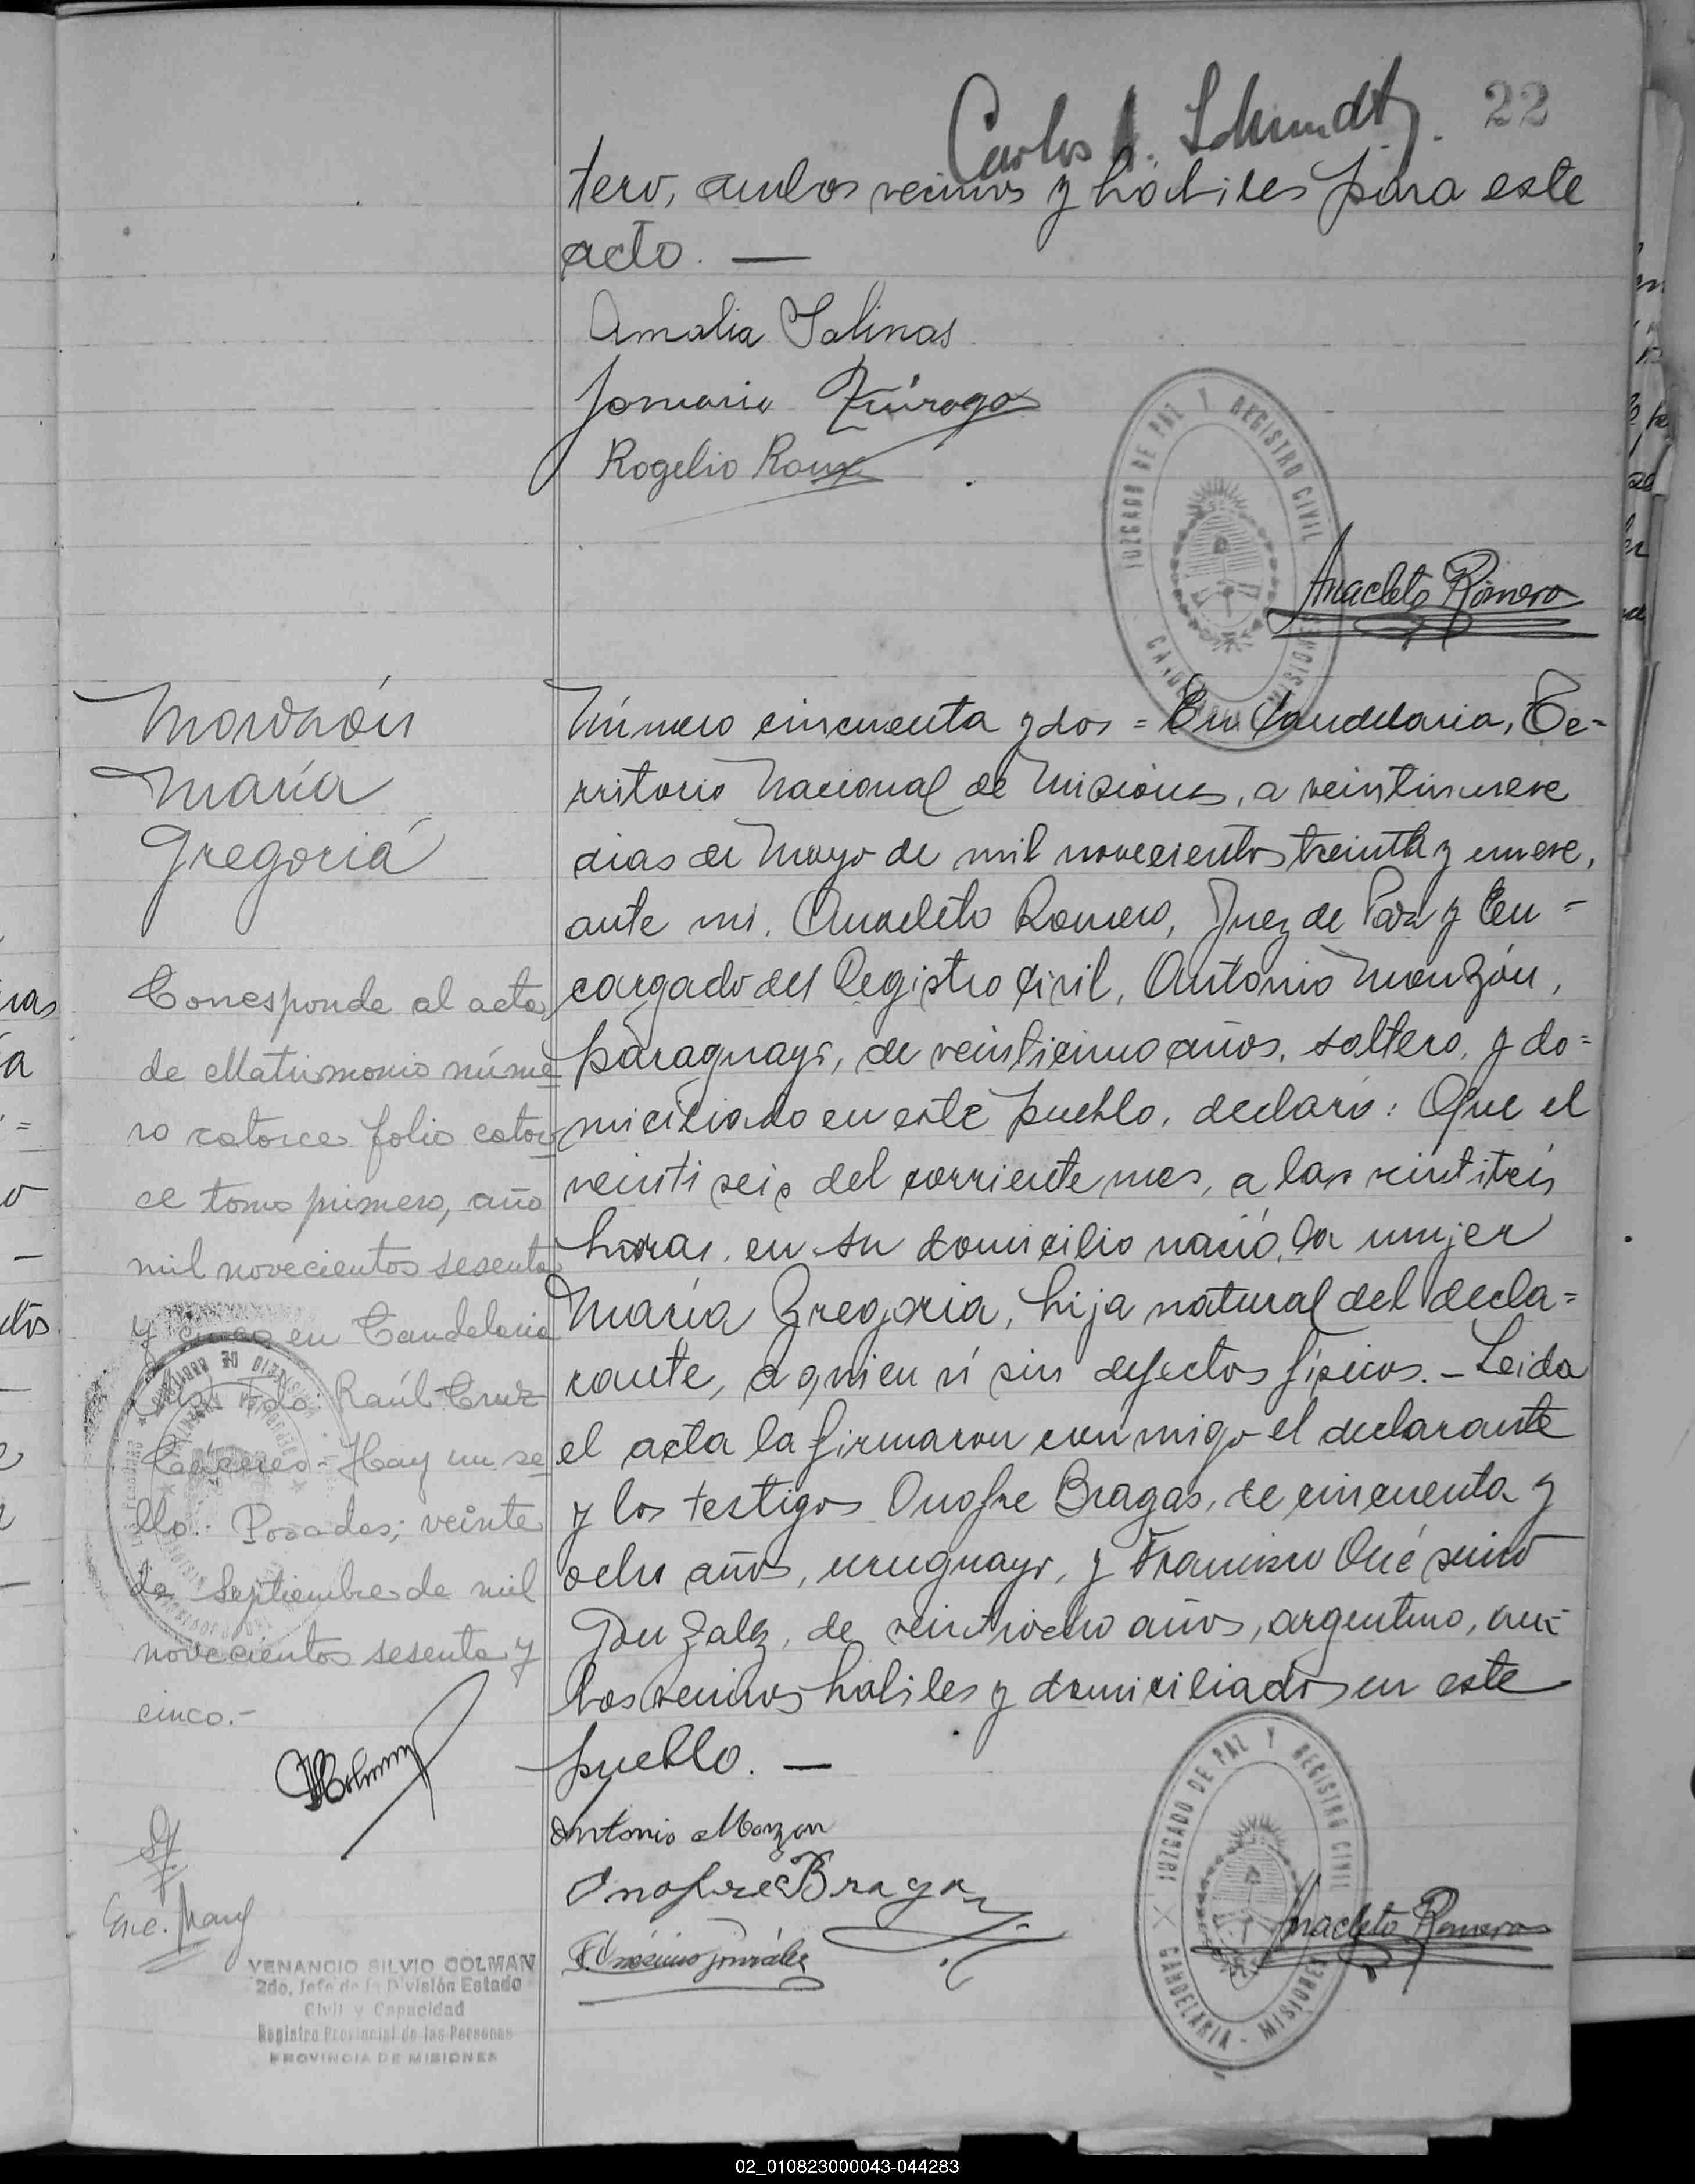 22
Carlos A. Schmidt
tero, ambos vecinos y hábiles para este
acto. —
Amalia Salinas
Januario Quiroga
Rogelio Roux
JUZGADO DE PAZ Y REGISTRO CIVIL
MISIONES
Anacleto Romero
Monzón
María
Gregoria
Número cincuenta y dos = En Candelaria, Te-
rritorio Nacional de Misiones, a veintinueve
dias de Mayo de mil novecientos treinta y nueve,
ante mi, Anacleto Romero, Juez de Paz y En-
cargado del Registro Civil, Antonio Monzón,
paraguayo, de veinticinco años, soltero, y do=
miciliado en este pueblo, declaró: Que el
veintiseis del corriente mes, a las veintitrés
horas, en su domicilio nació la mujer
María Gregoria, hija natural del decla=
rante, a quien ví sin defectos físicos. – Leida
el acta la firmaron conmigo el declarante
y los testigos Onofre Bragas, de cincuenta y
ocho años, uruguayo, y Francisco Onésimo
Gonzalez, de veintiocho años, argentino, am-
bos vecinos, habiles y domiciliados en este
pueblo. —
Antonio Monzon
Onofre Bragas
F. Onésimo González
JUZGADO DE PAZ Y REGISTRO CIVIL
CANDELARIA - MISIONES
Anacleto Romero
Corresponde al acta
de Matrimonio núme
ro catorce folio cator
ce tomo primero, año
mil novecientos sesenta
y cinco en Candelaria
Raúl Cruz
Cáceres - Hay un se
llo.- Posadas, veinte
de Septiembre de mil
novecientos sesenta y
cinco.-
VENANCIO SILVIO COLMAN
2do. Jefe de la División Estado
Civil y Capacidad
Registro Provincial de las Personas
PROVINCIA DE MISIONES
02_010823000043-044283